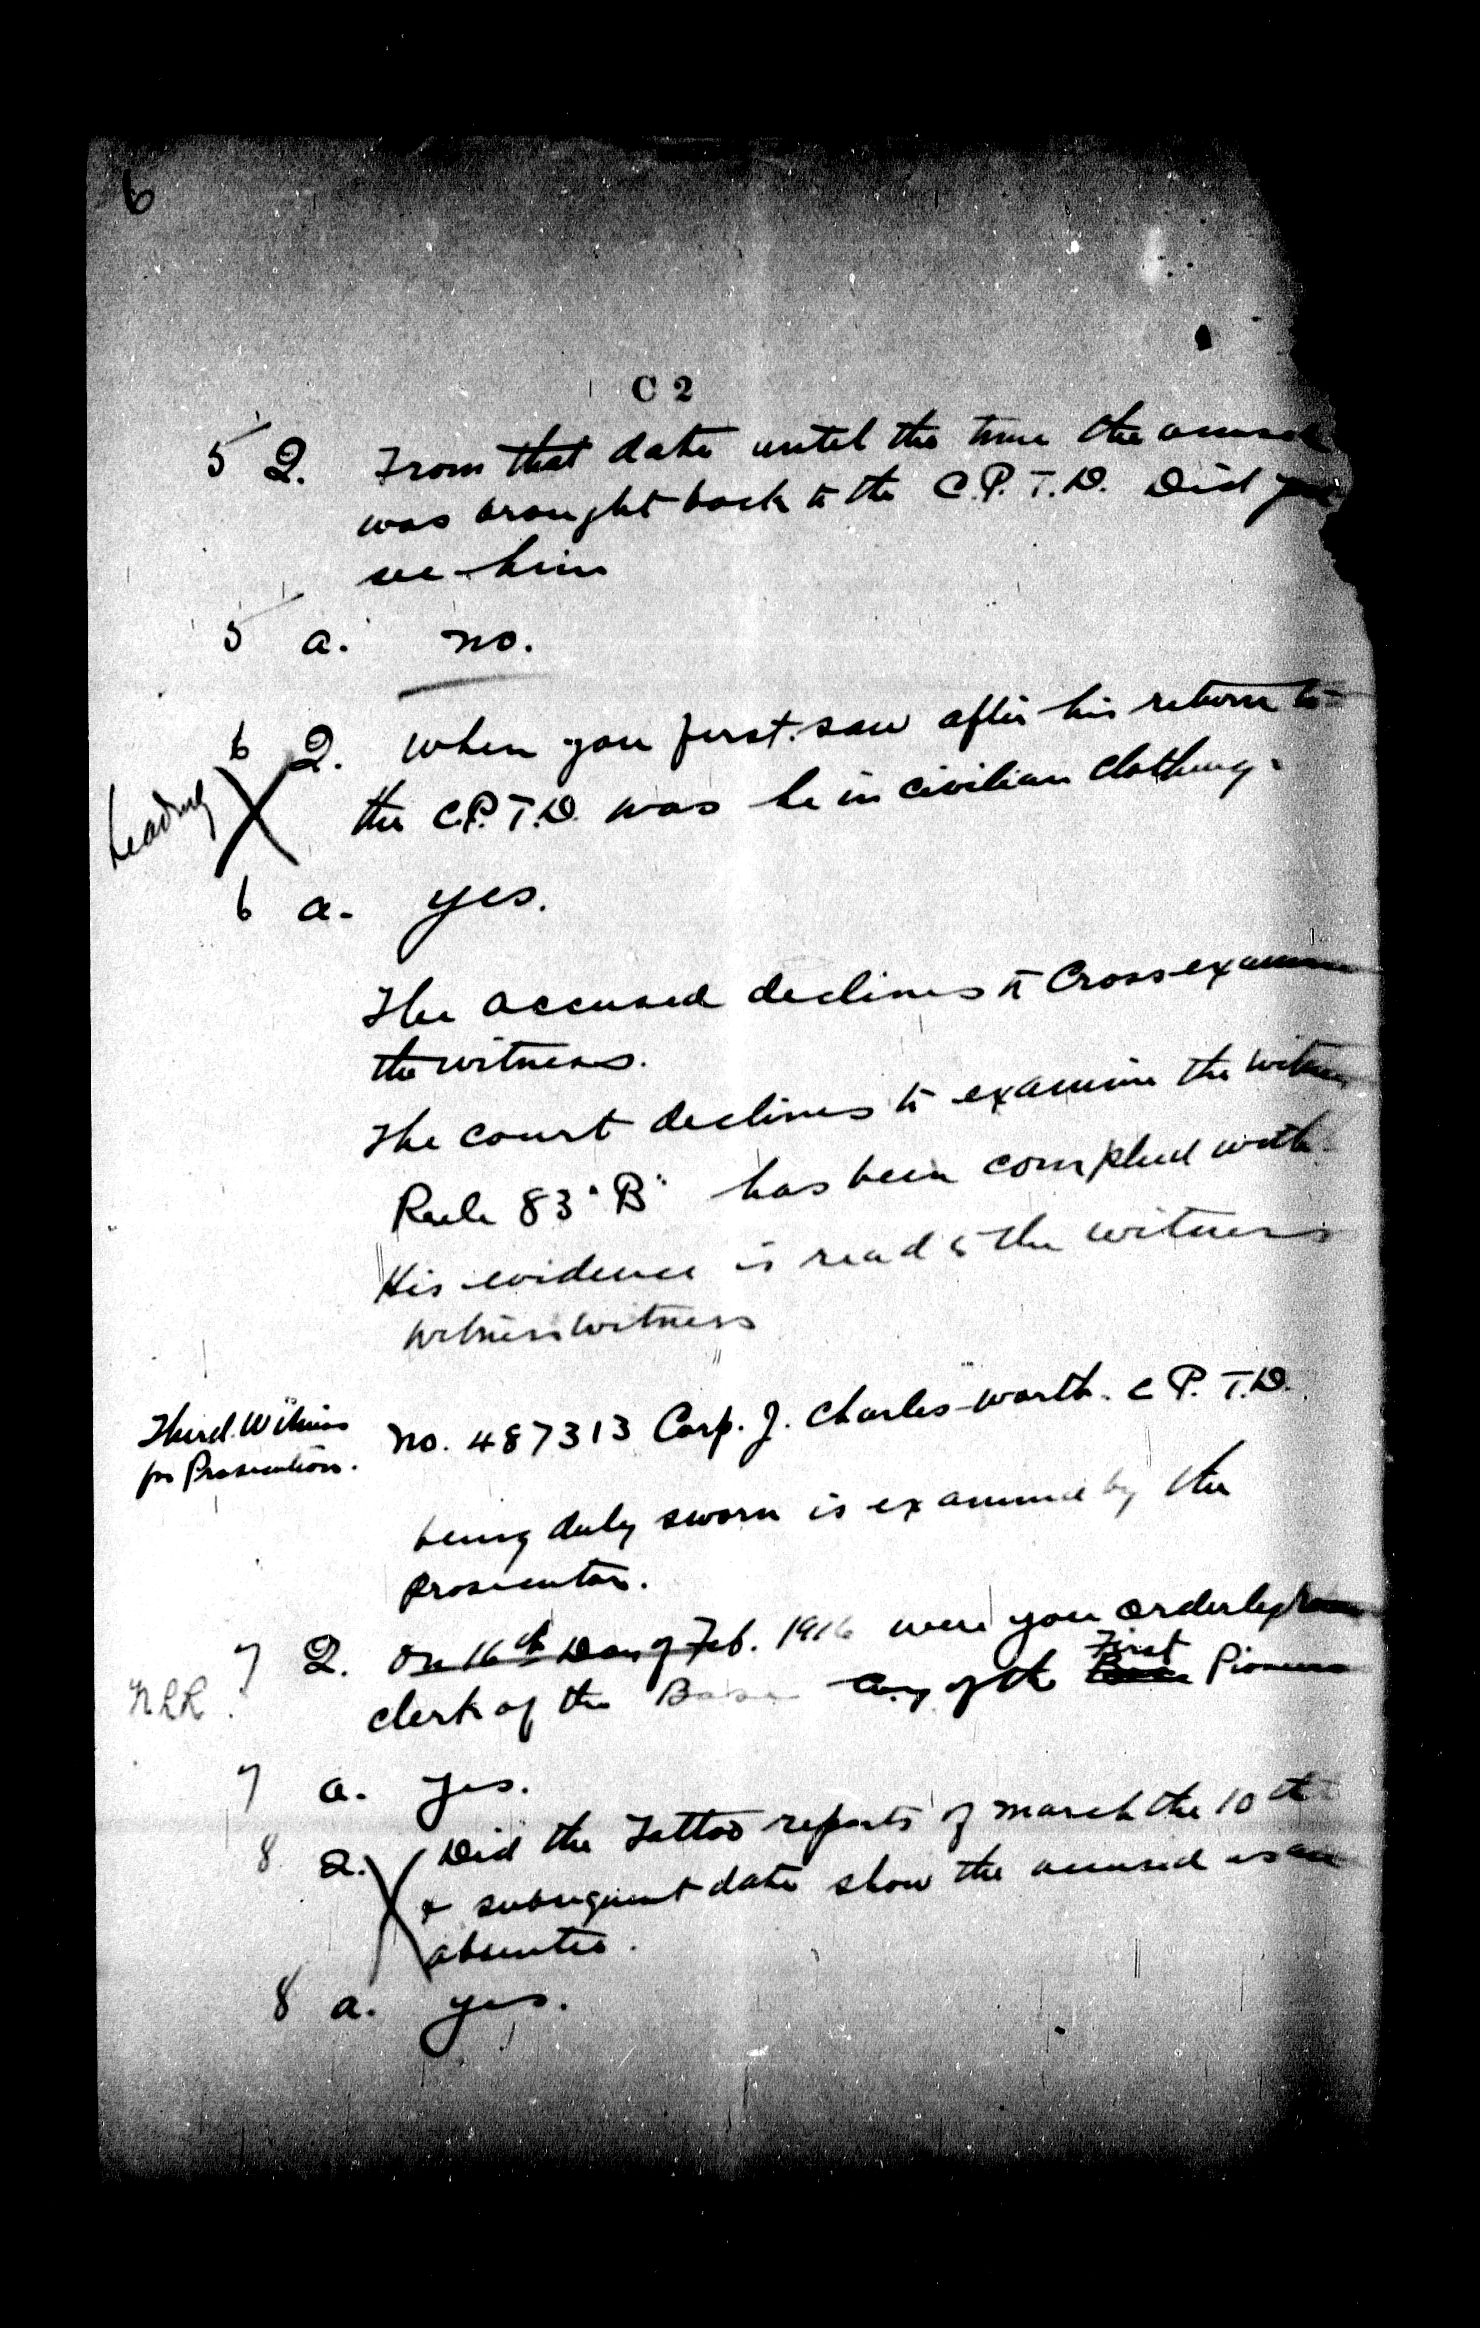 6
C 2
5 Q. From that date until the time the accused
was brought back to the C.P.T.D. Did you
see him
5 a. no.
Leading
6 Q. When you first saw after his return to
the C.P.T.D. was he in civilian clothing.
6 a. yes.
The accused declines to Cross examine
the witness.
The court declines to examine the witness
Rule 83 "B" has been complied with.
His evidence is read to the witness
witness witness
Third Witness
for Prosecution.
No. 487313 Corp. J. Charlesworth. C P. T.D.
being duly sworn is examined by the
prosecutor.
7 Q. On 16th Day of Feb. 1916 were you orderly room
NRR
clerk of the Base Coy of the First Base Pioneers
7 a. Yes.
8 Q. Did the Tattoo reports of March the 10th
& subsequent date show the accused as an
absentee.
8 a. yes.